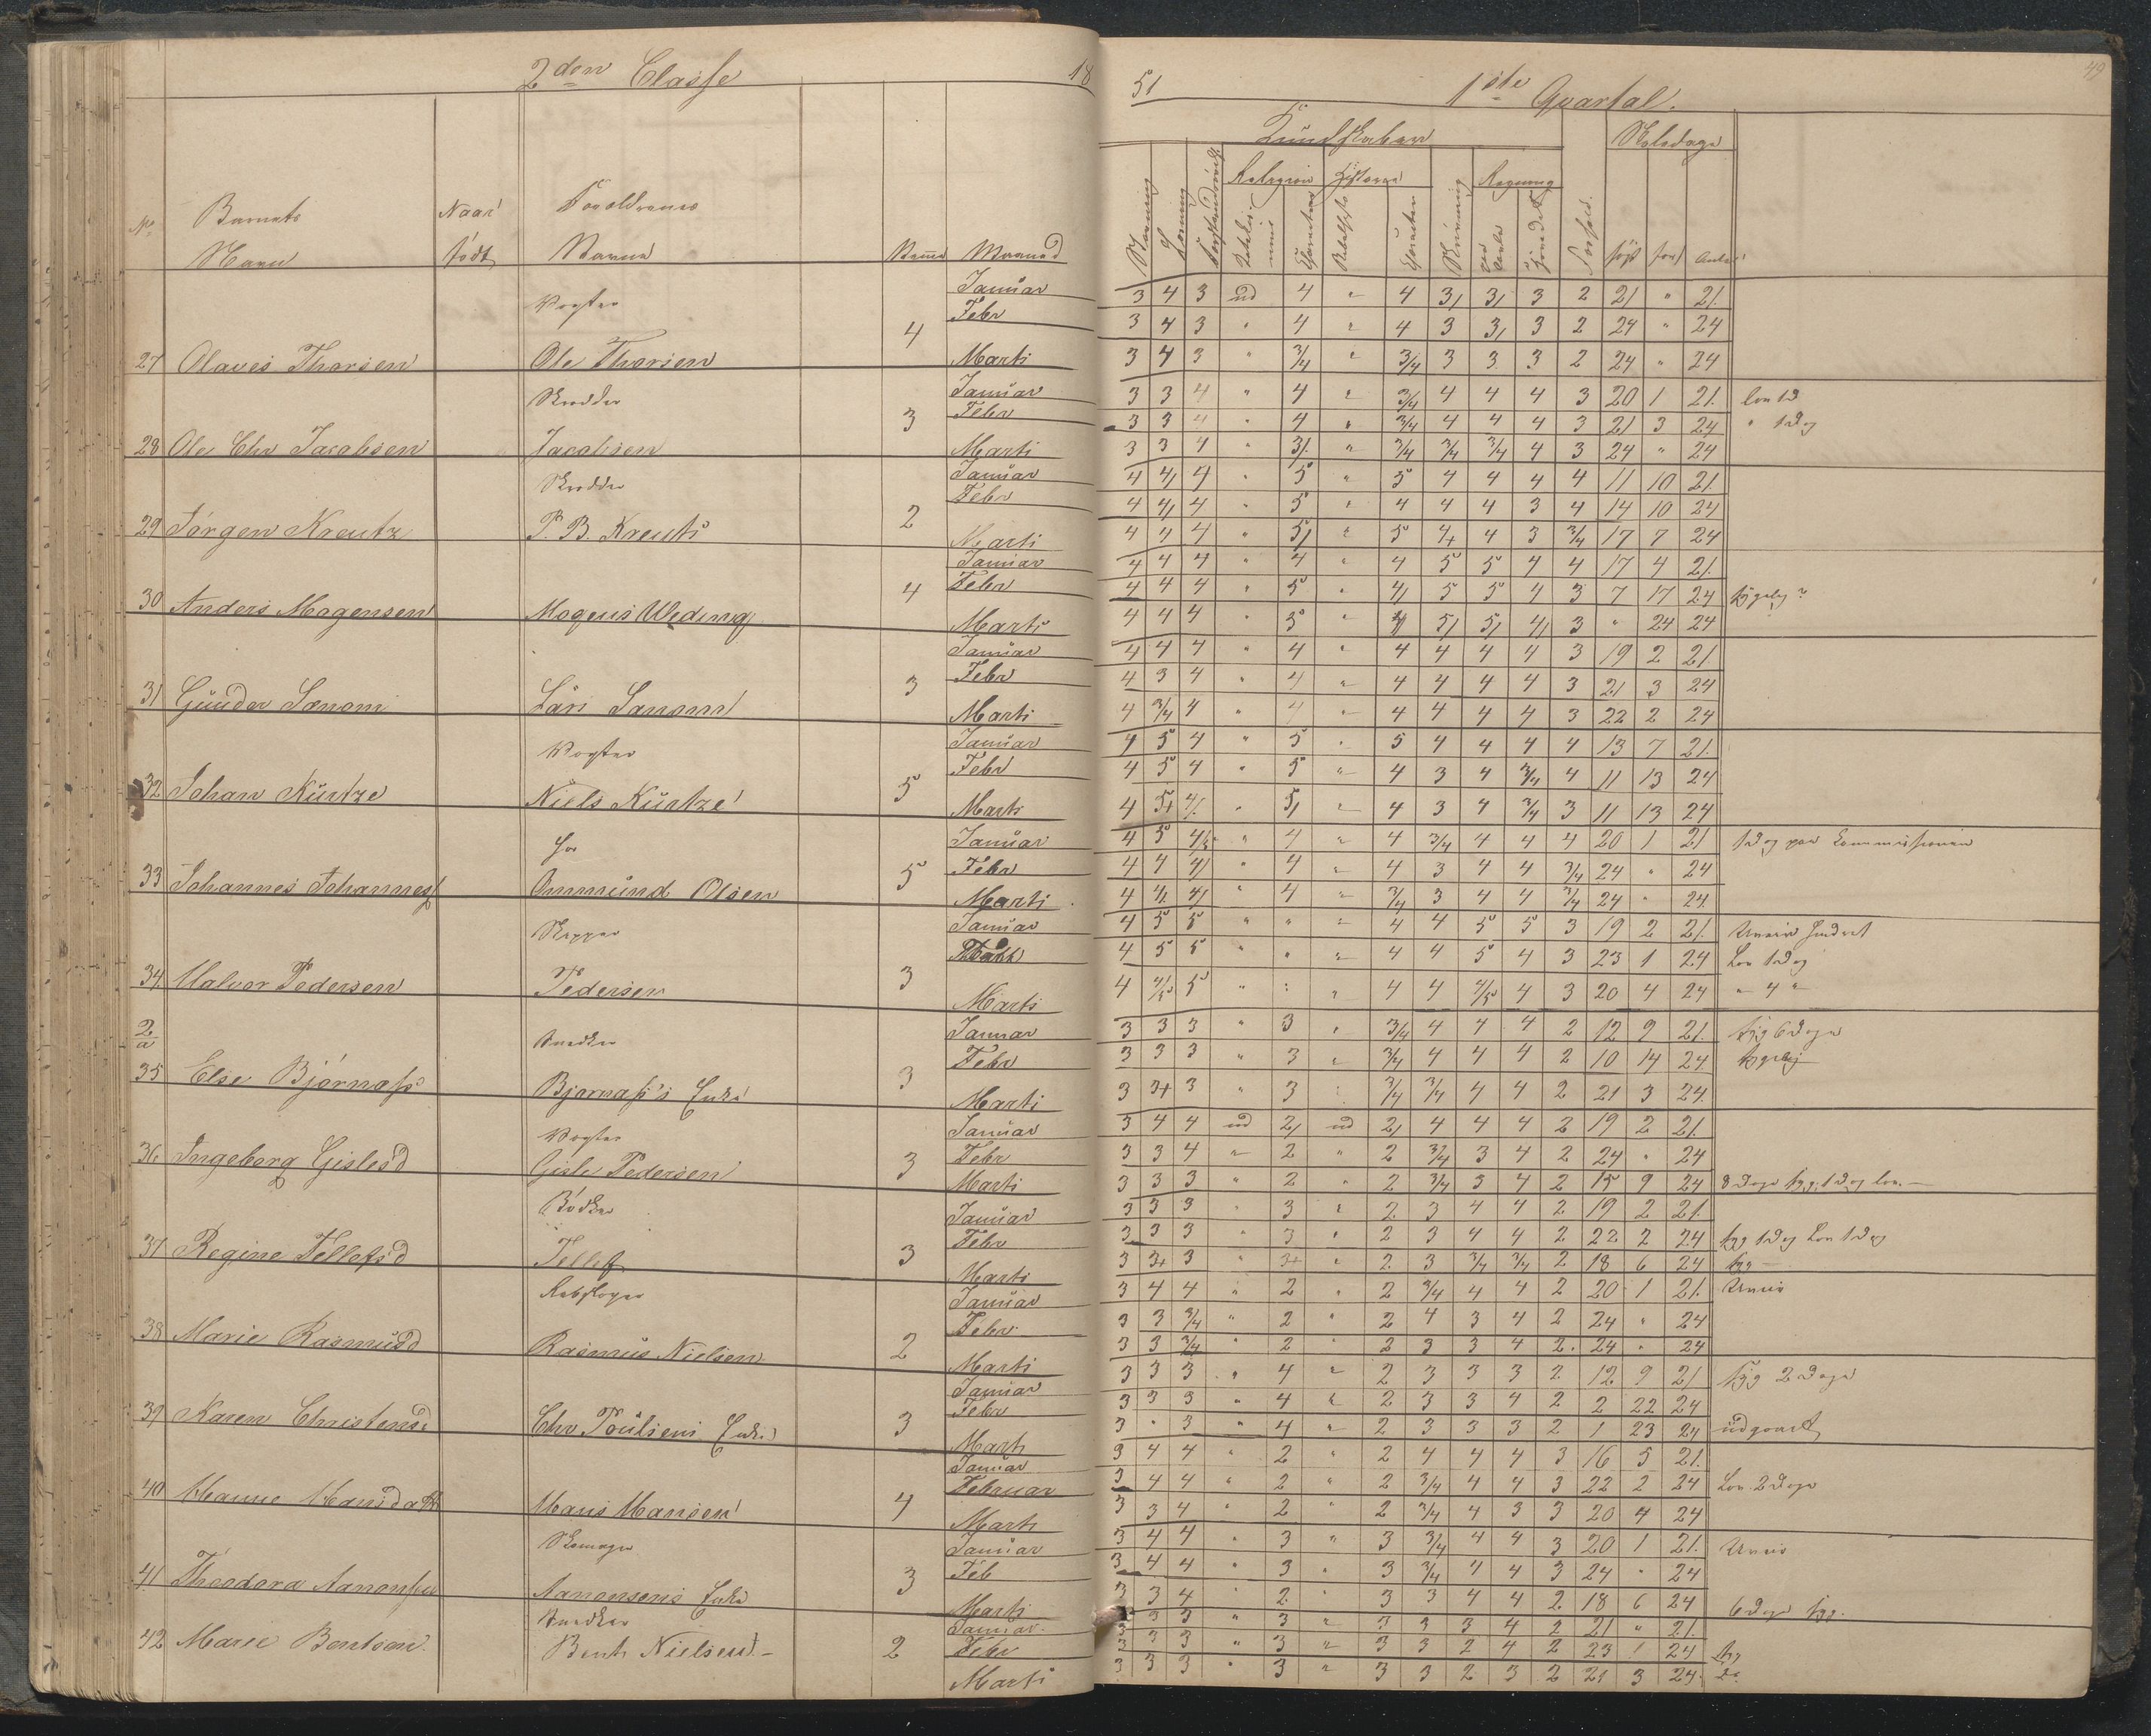 2den Classe 18
51 1ste Qvartal. 49
No Barnets Navn Naar födt Forældrenes Navne Rømme Maaned
Kundskaber Skoledage
Religion Historie Regning
27 Olaves Thorsen Vogter Ole Thorsen 4
Januar 3 4 3 ud 4 " 4 3/ 3/ 3 2 21 " 21.
Febr 3 4 3 " 4 " 4 3 3/ 3 2 24 " 24
Marti 3 4 3 " 3/4 " 3/4 3 3 3 2 24 " 24
28 Ole Chr Jacobsen Jacobsen 3
Januar 3 3 4 " 4 " 3/4 4 4 4 3 20 1 21.
Febr 3 3 4 " 4 " 3/4 4 4 4 3 21 3 24
Marti 3 3 4 " 3/. " 3/4 3/4 3/4 4 3 24 " 24
29 Jörgen Kreutz P. B. Kreuts 2
Januar 4 4/ 4 " 5 " 5 4 4 4 4 11 10 21.
Febr 4 4/ 4 " 5 " 4 4 4 3 4 14 10 24
Marti 4 4 4 " 5/ " 5 4+ 4 3 3/4 17 7 24
30 Anders Mogensen Mogens Weding 4
Januar 4 4 4 " 4 " 4 5 5 4 4 17 4 21.
Febr 4 4 4 " 5 " 4/ 5 5 4 3 7 17 24
Marti 4 4 4 " 5 " 4 5/ 5/ 4/ 3 " 24 24
31 Gunder Sanom Lars Sanom 3
Januar 4 4 4 " 4 " 4 4 4 4 3 19 2 21
Febr 4 3 4 " 4 " 4 4 4 4 3 21 3 24
Marti 4 3/4 4 " 4 " 4 4 4 4 3 22 2 24
32 Johan Kuntze Vogter Niels Kuntze 5
Januar 4 5 4 " 5 " 5 4 4 4 4 13 7 21.
Febr 4 5 4 " 5 " 4 3 4 3/4 4 11 13 24
Marti 4 5+ 4/. " 5/ " 4 3 4 3/4 3 11 13 24
33 Johannes Johannesf Ommund Olsen 5
Januar 4 5 4/5 " 4 " 4 3/4 4 4 4 20 1 21 1 dag paa Commissionen
Febr 4 4 4/ " 4 " 4 3 4 4 3/4 24 " 24
Marti 4 4/. 4/ " 4 " 3/4 3 4 4 3/4 24 " 24.
34 Halvor Pedersen Skipper Pedersen 3
Januar 4 5 5 " " " 4 4 5 5 3 19 2 21.
4 5 5 " " " 4 4 5 4 3 23 1 24 Lov 1 dag
Marti 4 4/5 5 " " " 4 4 4/5 4 3 20 4 24 " 4 "
2/a
35 Else Björnass Snedker Bjornass's Enke 3
Januar 3 3 3 " 3 " 3/4 4 4 4 2 12 9 21. syg 6 dage
Febr 3 3 3 " 3 " 3/4 4 4 4 2 10 14 24
Marti 3 3+ 3 " 3 " 3/4 3/4 4 4 2 21 3 24.
36 Ingeborg Gislesd Vogter Gisle Pedersen 3
Januar 3 4 4 ud 2/ ud 2/ 4 4 4 2 19 2 21.
Febr 3 3 4 " 2 " 2 3/4 3 4 2 24 " 24
Marti 3 3 3 " 2 " 2 3/4 3 4 2 15 9 24 8 Dage syg, 1 dag lov.
37 Regine Tellefsd Bödker Tellef 3
Januar 3 3 3 " 3 " 2 3 4 4 2 19 2 21.
Febr 3 3 3 " 3 " 2 3 4 4 2 22 2 24 syg 1 dag Lov 1 dag
Marti 3 3+ 3 " 3+ " 2 3 3/4 3/4 2 18 6 24 syg
38 Marie Rasmusd Rebslager Rasmus Nielsen 2
Januar 3 4 4 " 2 " 2 3/4 4 4 2 20 1 21. Uveir
Febr 3 3 3/4 " 2 " 2 4 3 4 2 24 " 24
Marti 3 3 3/4 " 2 " 2 3 3 4 2. 24 " 24
39 Karen Christensd Chr Poulsens Enke 3
Januar 3 3 3 " 4 " 2 3 3 3 2 12 9 21 syg 2 dage
Febr 3 3 3 " 4 " 2 3 3 4 2 2 22 24
Marti 3 " 3 " 4 " 2 3 3 3 2 1 23 24 udgaaet
40 Hanne Hansdatt Hans Hansen 4
Januar 3 4 4 " 2 " 2 4 4 4 3 16 5 21.
Februar 3 4 4 " 2 " 2 3/4 4 4 3 22 2 24 Lov 2 dage
Marti 3 3 4 " 2 " 2 3/4 4 3 3 20 4 24
41 Theodora Aanonsen Skomager Aanonsens Enke 3
Januar 3 4 4 " 3 " 3 3/4 4 4 3 20 1 21. Uveir
Feb 3 4 4 " 3 " 3 3/4 4 4 3 24 " 24
Marti 3 3 4 " 2 " 3 3 4 4 2 18 6 24 6 dage syg.
42 Maren Bentsen Snedker Bent Nielsen 2
Januar 3 3 3 " 3 " 3 3 3 4 2 21 " 21.
Febr 3 3 3 " 3 " 3 3 2 4 2 23 1 24 syg
Marti 3 3 3 " 3 " 3 3 2 3 2 21 3 24. do